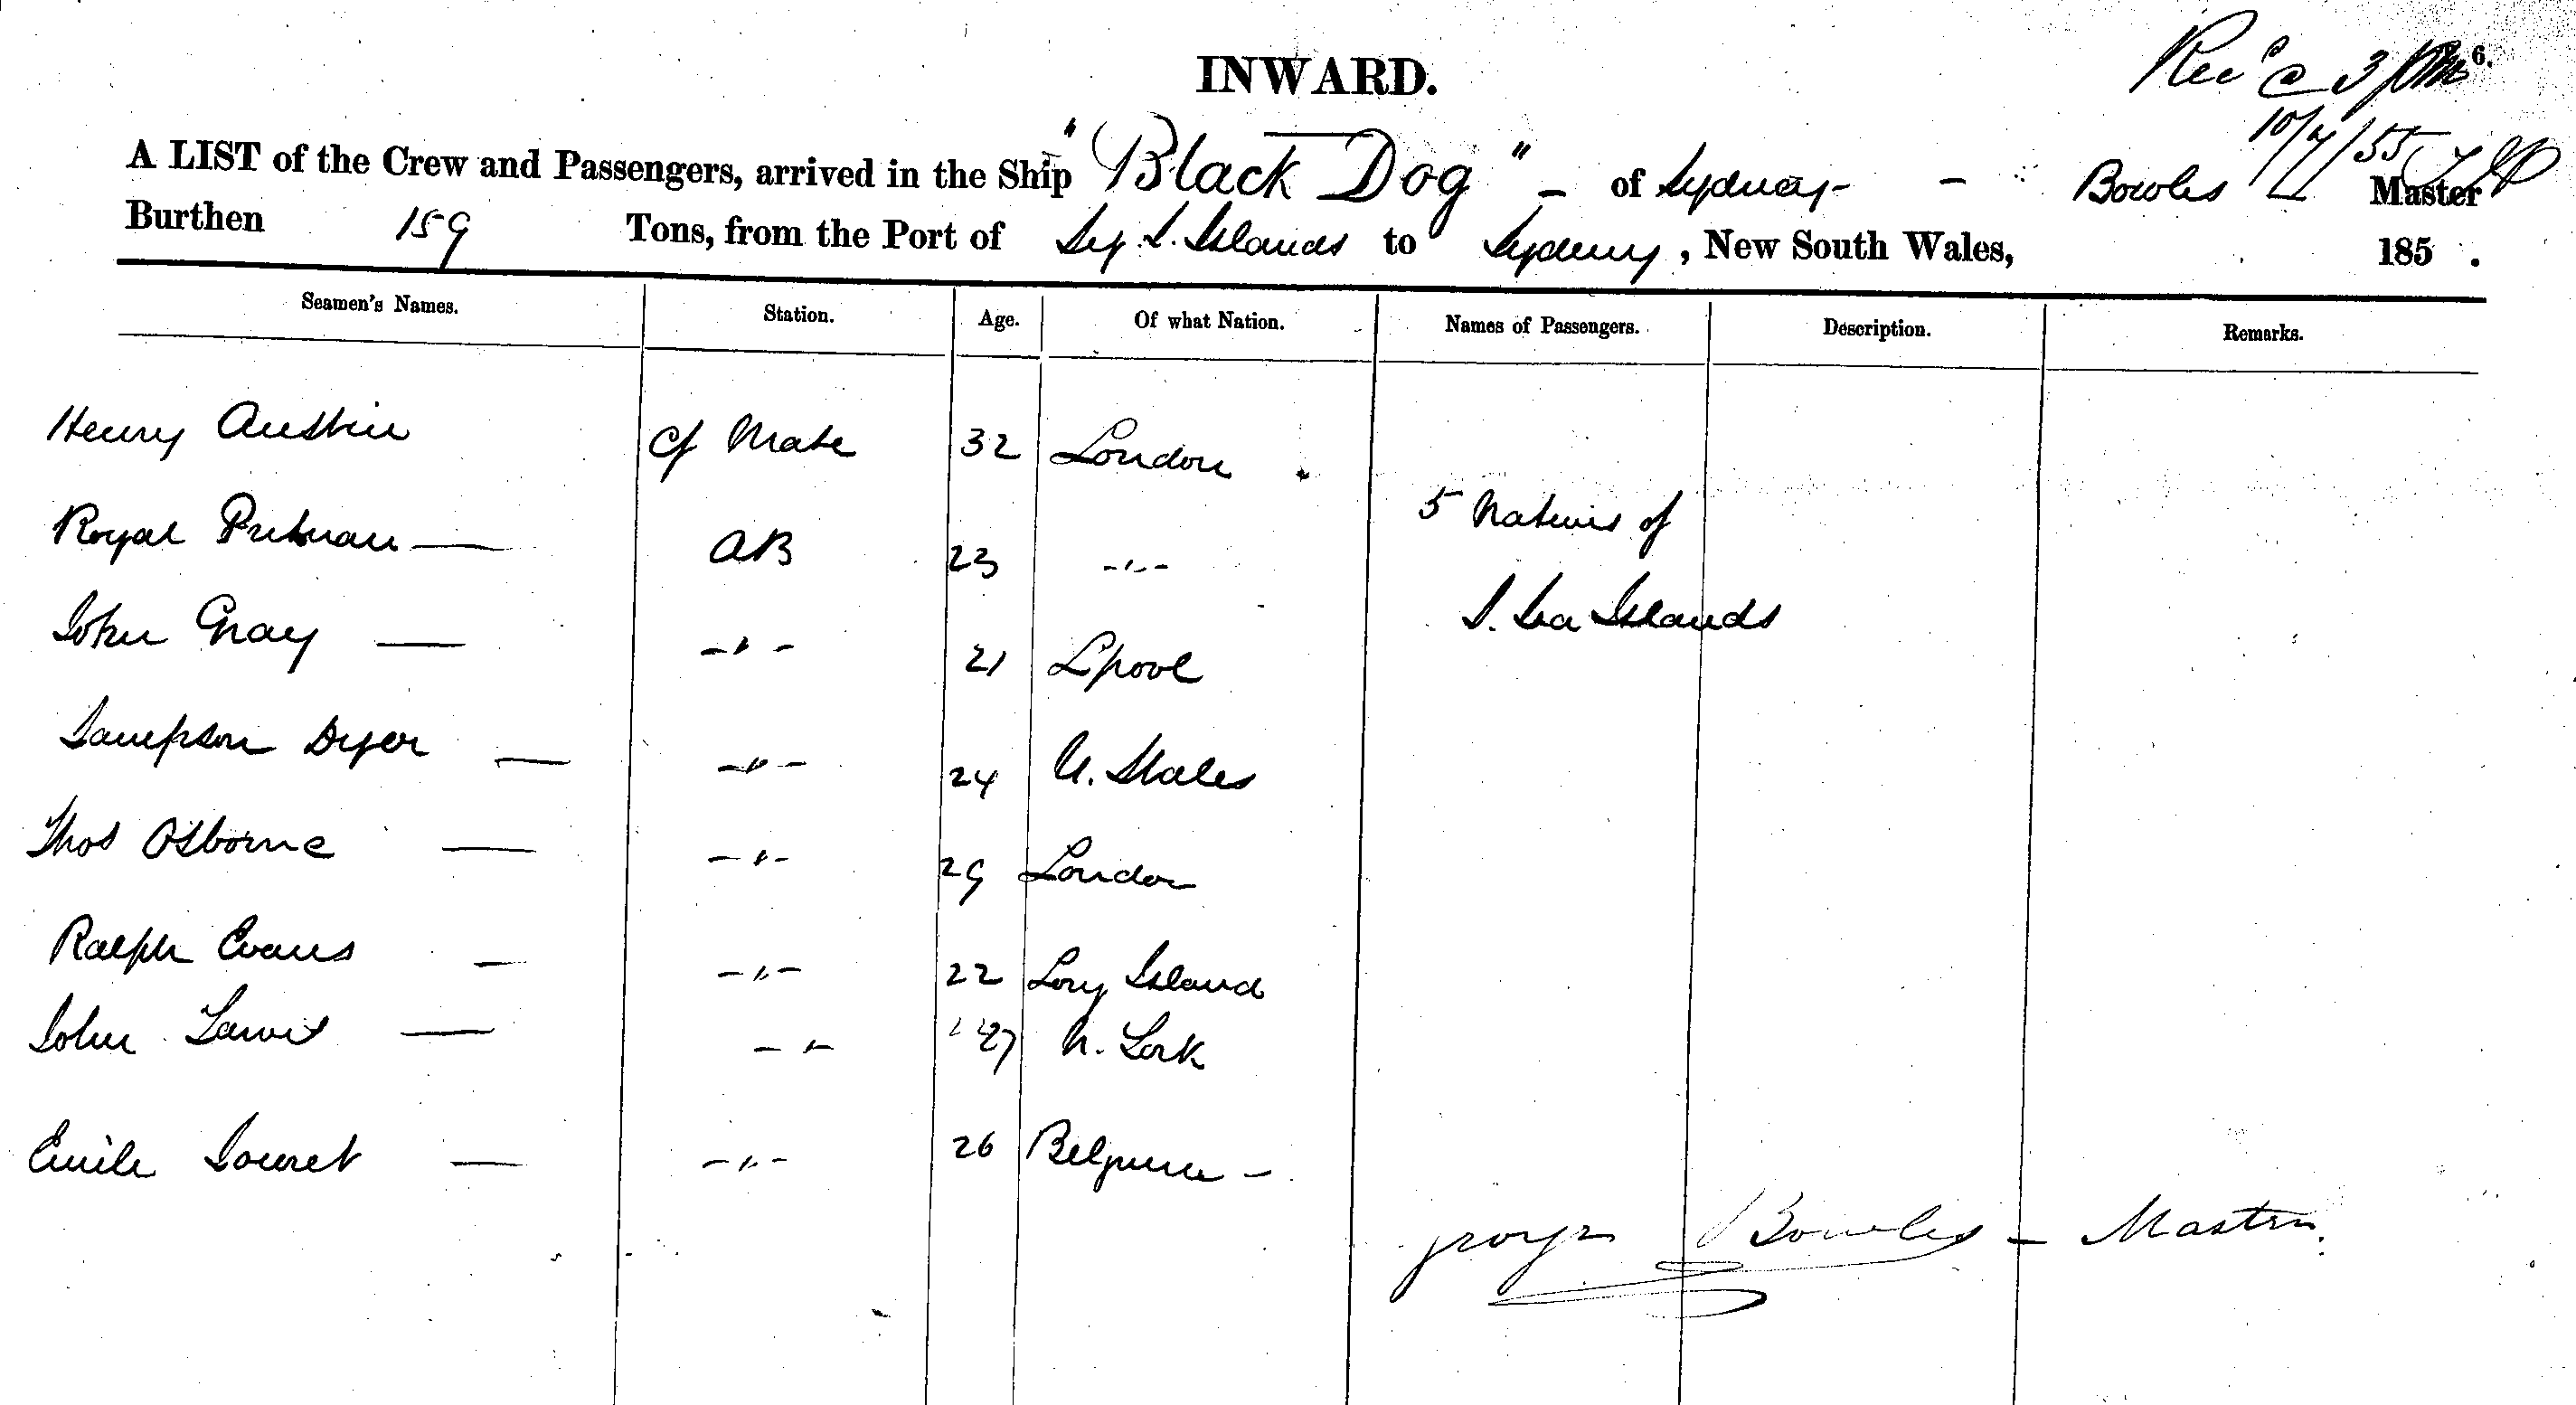 INWARD.
Rec'd @ 3 pm 6.
10/7/55
A LIST of the Crew and Passengers, arrived in the Ship "Black Dog" - of Sydney - - Bowles Master
Burthen 159 Tons, from the Port of S. Islands to Sydney, New South Wales, 185 .
Seamen's Names. Station. Age. Of what Nation. Names of Passengers. Description. Remarks.
Henry Austin Cf Mate 32 London
Royal Putnam — AB 23 -"-
5 Natives of
S. Sea Islands
John Gray — -"- 21 Lpool
Sampson Dyer — -"- 24 U. States
Thos Osborne — -"- 29 London
Ralph Evans — -"- 22 Long Island
John — -"- 27 N. York
Emile — -"- 26 Belgium -
George Bowles - Master